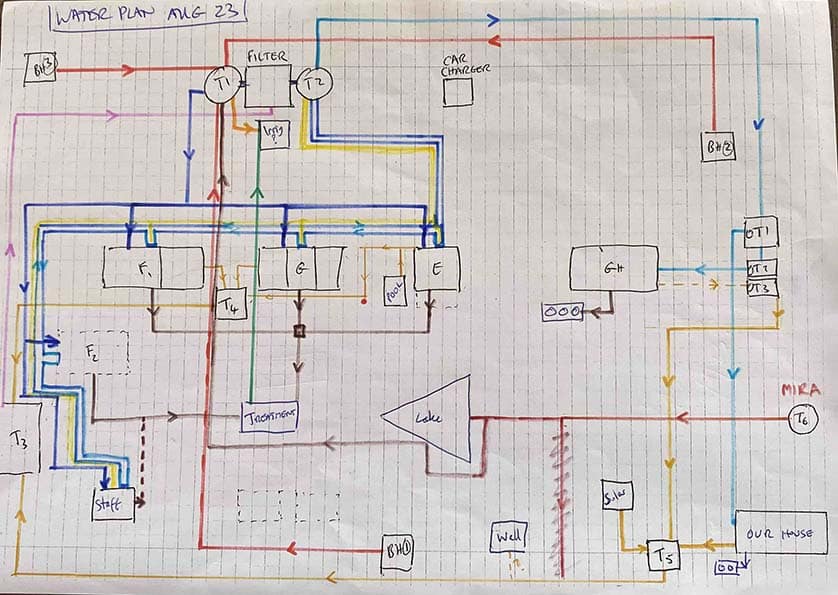 WATER PLAN AUG 23
BH③
T1
FILTER
T2
CAR
CHARGER
BH②
OT1
OT2
OT3
F1
G
E
POOL
T4
GH
000
F2
T3
TREATMENT
Lake
MIRA
T6
Staff
Solar
Well
BH①
T5
OUR HOUSE
00